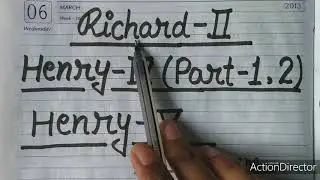 06
MARCH
Wednesday
2013
Richard-II
Henry-IV (Part-1,2)
Henry-
ActionDirector